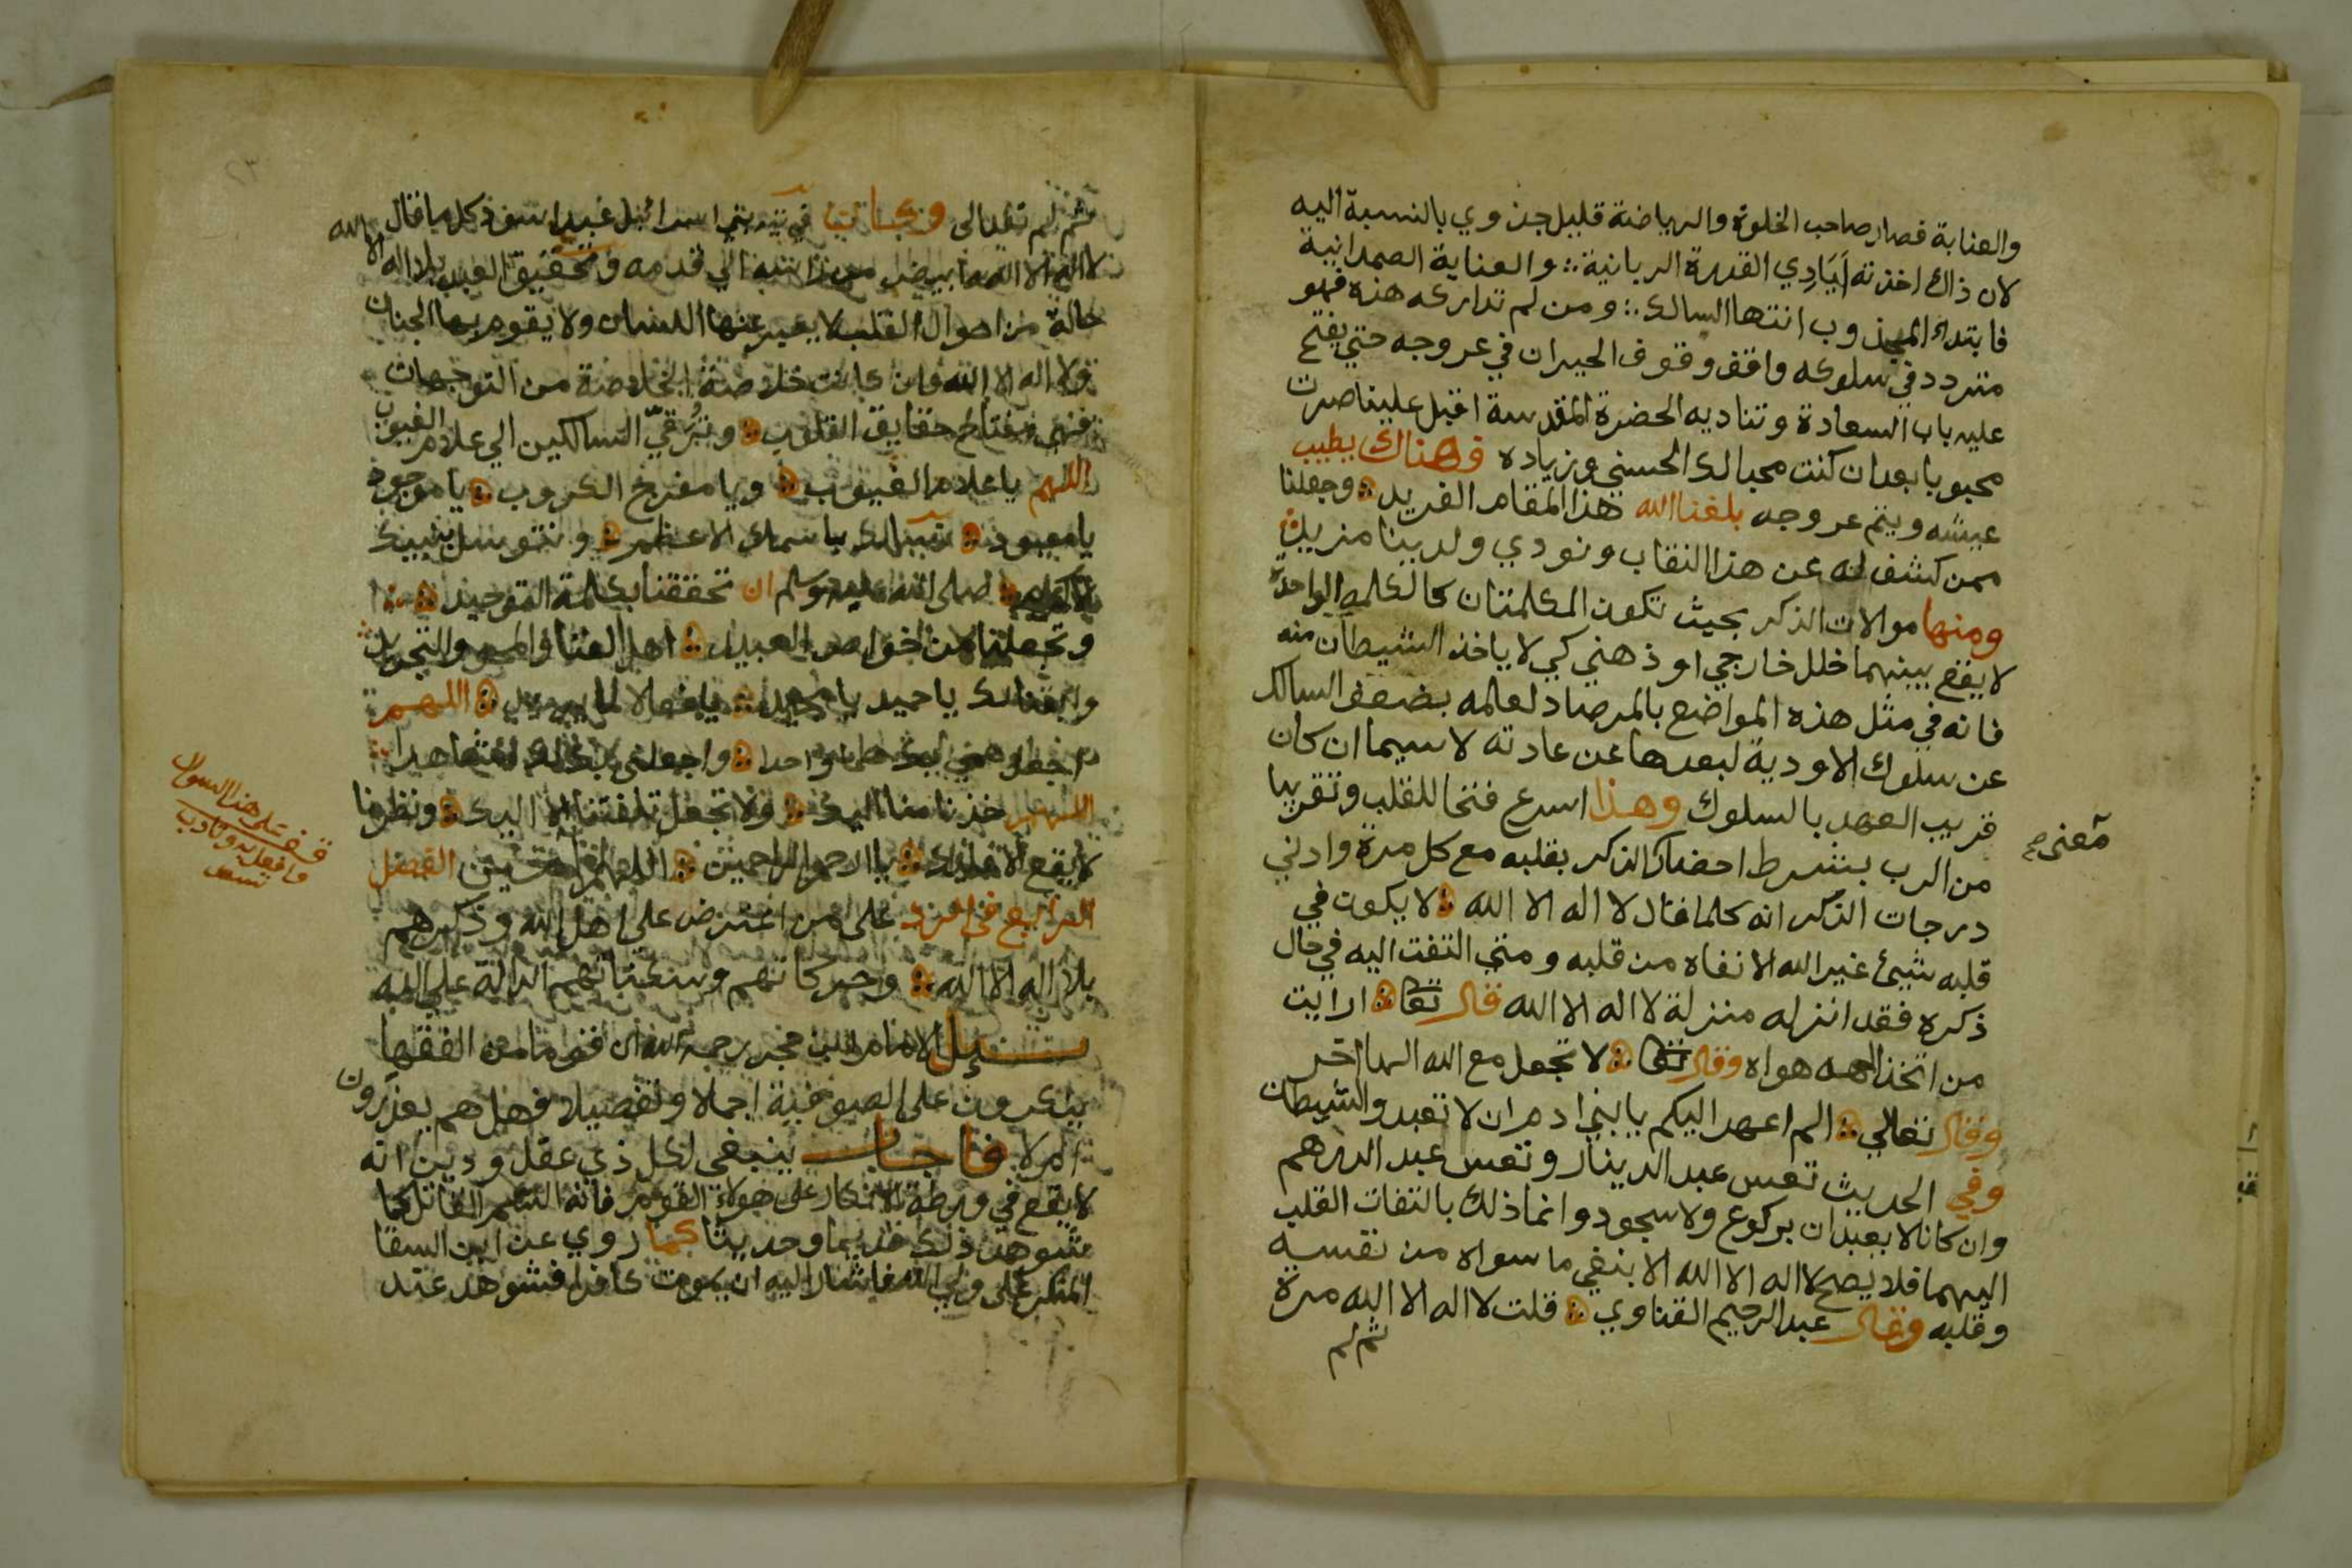 والعناية فصار صاحب الخلوة والرياضة قليل جذوي بالنسبة اليه
لان ذاك اخذته اَيَادِي القدرة الربانية والعناية الصمدانية
فابتداء المجذوب انتها السالك ومن لم تداركه هذه فهو
متردد في سلوكه واقف وقوف الحيران في عروجه حتي يفتح
عليه باب السعادة وتناديه الحضرة المقدسة اقبل علينا صرت
محبوبا بعد ان كنت محبا لك الحسني وزيادة فهناك يطيب
عيشه ويتم عروجه بلغنا الله هذا المقام الفريد وجعلنا
ممن كشف له عن هذا النقاب ونودي ولدينا مزيد
ومنها موالات الذكر بحيث تكون الكلمتان كالكلمة الواحدة
لا يقع بينهما خلل خارجي او ذهني كي لا ياخذ الشيطان منه
فانه في مثل هذه المواضع بالمرصاد لعالمه بضعف السالك
عن سلوك الاودية لبعدها عن عادته لا سيما ان كان
قريب العهد بالسلوك وهذا اسرع فتحا للقلب وتقريبا
من الرب بشرط احضار الذكر بقلبه مع كل مرة وادني
معنى صح
درجات الذكر انه كلما قال لا اله الا الله لا يكون في
قلبه شيئ غير الله الا نفاه من قلبه ومتي التفت اليه في حال
ذكره فقد انزله منزلة لا اله الا الله قال تعا ارايت
من اتخذ الهه هواه وقال تعا لا تجعل مع الله الها اخر
وقال تعالي الم اعهد اليكم يا بني ادم ان لا تعبدوا الشيطان
وفي الحديث تعس عبد الدينار وتعس عبد الدرهم
وان كانا لا يعبدان بركوع ولا سجود وانما ذلك بالتفات القلب
اليهما فلا يصح لا اله الا الله الا بنفي ما سواه من نفسه
وقلبه وقال عبد الرحيم القناوي قلت لا اله الا الله مرة
ثم لم
ثم لم تعد الي وكان في تيه بني اسرائيل عبد اسود كل ما قال
لا اله الا الله ابيض من راسه الي قدمه وتحقيق العبد بلا اله الا الله
حالة من احوال القلب لا يعبر عنها اللسان ولا يقوم بها الجنان
ولا اله الا الله وان كانت خلاصة الخلاصة من التوجهات
فهي مفتاح حقايق القلوب وتُرقيّ السالكين الي علام الغيوب
اللهم يا علام الغيوب ويا مفرج الكروب يا موجود
يا معبود نسالك باسمك الاعظم ونتوسل بنبيك
صلى الله عليه وسلم ان تحققنا بكلمة التوحيد
وتجعلنا من خواص العبيد اهل الفنا والمحو والتجريد
يا حميد يا مجيد يا فعالا لما يريد اللهم
اللهم خذنا منا اليك ولا تجعل تلفتنا الا اليك ونظرنا
لا يقع الا عليك يا ارحم الراحمين اللهم امين الفصل
الرابع في الرد على من اعترض على اهل الله وذكرهم
بلا اله الا الله وحركاتهم وسبحاتهم الدالة علي الله
سئل الامام ابن حجر رحمه الله ان قوما من الفقها
ينكرون على الصوفية اجمالا وتفصيلا فهل هم يعذرون
ام لا فاجاب ينبغي لكل ذي عقل ودين انه
لا يقع في ورطة الانكار على هولاء القوم فانه السم القاتل كما
شوهد ذلك قديما وحديثا كما روي عن ابن السقا
المنكر على ولي الله فاشار اليه ان يموت كافرا فشوهد عند
قف على هذا السوال